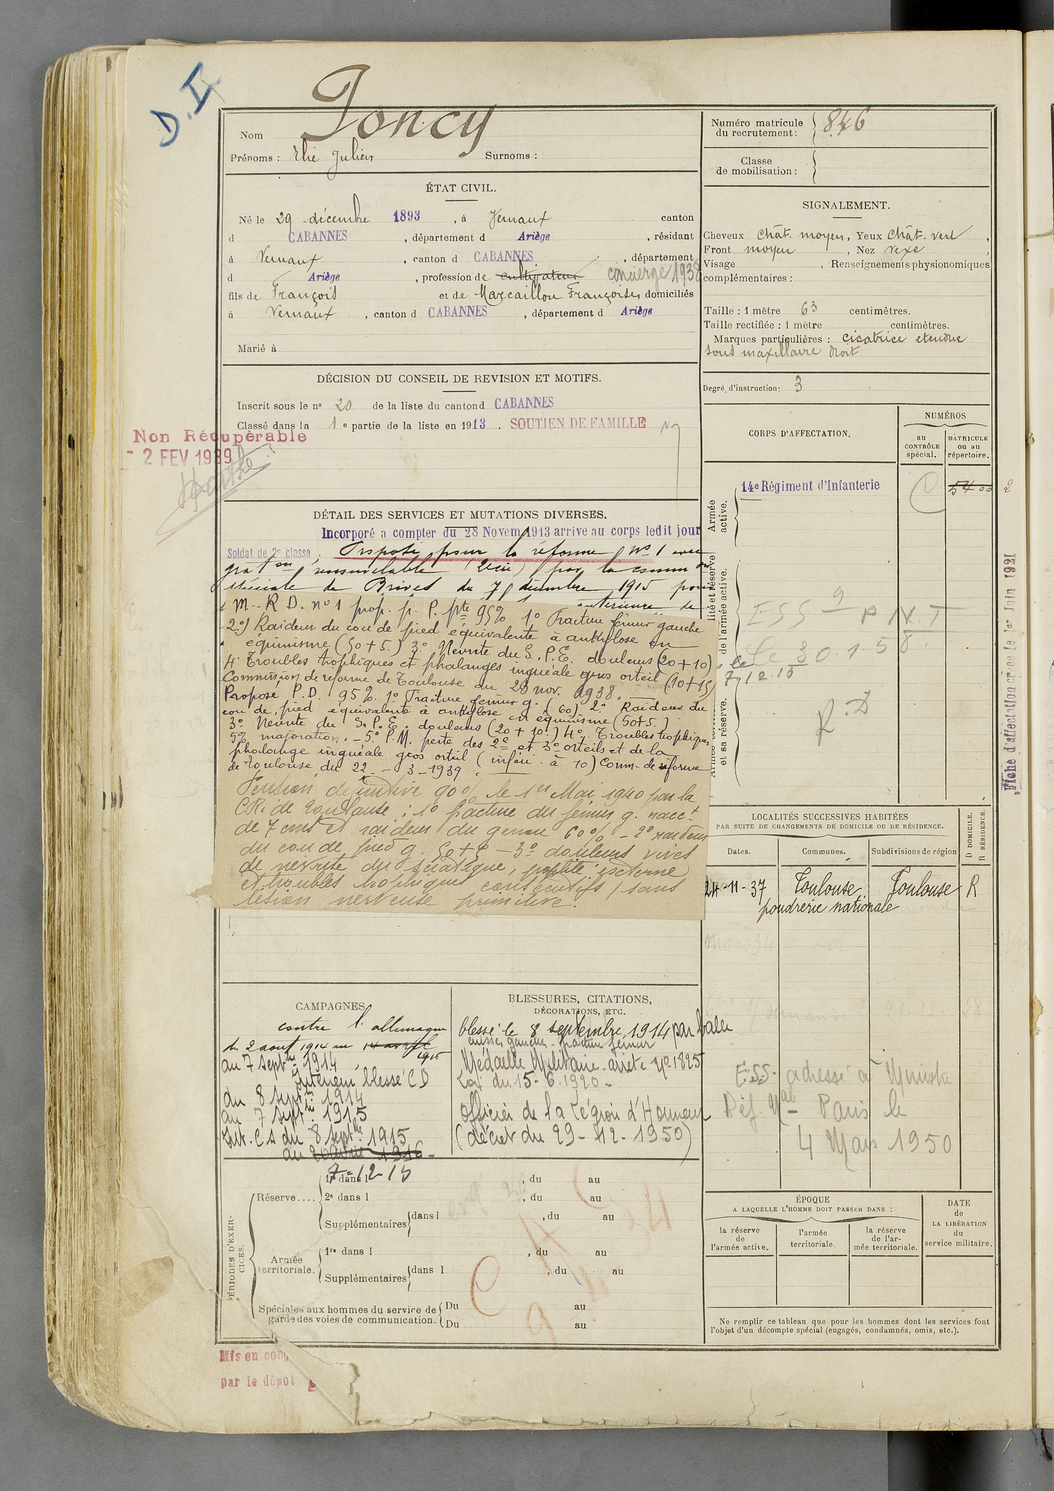 D.I
Nom Joncy
Prénoms : Elie Julien Surnoms :
ÉTAT CIVIL.
Né le 29 décembre 1893, à Vernaux canton
d CABANNES, département d Ariège, résidant
à Vernaux, canton d CABANNES, département
d Ariège, profession de cultivateur concierge 1938
fils de François et de Marcaillou Françoise, domiciliés
à Vernaux, canton d CABANNES, département d Ariège
Marié à
DÉCISION DU CONSEIL DE REVISION ET MOTIFS.
Inscrit sous le no 20 de la liste du canton d CABANNES
Classé dans la 1e partie de la liste en 1913. SOUTIEN DE FAMILLE
Non Récupérable
- 2 FEV 1939
DÉTAIL DES SERVICES ET MUTATIONS DIVERSES.
Incorporé à compter du 28 Novem 1913 arrive au corps ledit jour
Soldat de 2e classe. Proposé pour la réforme no 1 avec
graton renouvelable par la commission
spéciale de Brives du 7 décembre 1915 pour
M. - R D. no 1 prop. p. P. pte 95% 1o Fracture fémur gauche
2o) Raideur du cou de pied équivalente à ankylose en
équinisme (50+5.) 3o Nevrite du S.P.E. douleurs (20+10)
4o Troubles trophiques et phalanges inguéale gros orteil (10+15)
Commission de réforme de Toulouse du 29 nov. 1938.
Proposé P.D. 95%. 1o Fracture fémur g. (60) 2o Raideur du
cou de pied équivalente à ankylose en équinisme (50+5.)
3o Nevrite du S.P.E. douleurs (20+10.) 4o Troubles trophiques
5% majoration. - 5o P.M. perte des 2e et 3o orteils et de la
phalange inguéale gros orteil (infér. à 10) Comm. de réforme
de Toulouse du 22 - 3 - 1939.
Pension définitive 90% le 1er Mai 1940 par la
C.R. de Toulouse : 1o fracture du fémur g. racct
de 7 cms et raideur du genou 60% - 2o raideur
du cou de pied g. 50+5 - 3o douleurs vives
de nevrite du sciatique, poplité externe
et troubles trophiques consécutifs, sans
lésion nerveuse primitive.
CAMPAGNES
contre l'allemagne
du 2 aout 1914 au
1915
au 7 septbre 1914
Intérieur blessé CD
du 8 septbre 1914
au 7 septbre 1915
Int. CS du 8 septbre 1915
au
7-12-15
BLESSURES, CITATIONS,
DÉCORATIONS, ETC.
blessé le 8 septembre 1914 par balle
cuisse gauche - fracture fémur
Médaille Militaire arrêté No 1825
du 15-6-1920 -
Officier de la Légion d'Honneur
(décret du 29-12-1950)
PÉRIODES D'EXERCICES.
Réserve.... 1re dans l , du au
2e dans l , du au
Supplémentaires dans l , du au
Armée territoriale. 1re dans l , du au
Supplémentaires dans l , du au
Spéciales aux hommes du service de garde des voies de communication. Du au
Du au
Mis en cong
par le dépôt
Numéro matricule du recrutement : 846
Classe de mobilisation :
SIGNALEMENT.
Cheveux chât. moyen, Yeux chât. vert,
Front moyen, Nez vexe,
Visage , Renseignements physionomiques
complémentaires :
Taille : 1 mètre 63 centimètres.
Taille rectifiée : 1 mètre centimètres.
Marques particulières : cicatrice etendue
sous maxillaire droit
Degré d'instruction : 3
CORPS D'AFFECTATION.
NUMÉROS
au CONTRÔLE spécial.
MATRICULE ou au répertoire.
Armée active.
14e Régiment d'Infanterie
5400
ESS P.N.T
Le 30.1.58.
le
7/12.15
R.D
Fiche d'affectation créée le 1er Juin 1921
LOCALITÉS SUCCESSIVES HABITÉES
PAR SUITE DE CHANGEMENTS DE DOMICILE OU DE RÉSIDENCE.
D DOMICILE.
R RÉSIDENCE.
Dates. Communes. Subdivisions de région
24-11-37 Toulouse Toulouse R
poudrerie nationale
E.SS. adressé à Ministre
Déf. Nale - Paris le
4 Mars 1950
ÉPOQUE
A LAQUELLE L'HOMME DOIT PASSER DANS :
la réserve de l'armée active.
l'armée territoriale.
la réserve de l'armée territoriale.
DATE de LA LIBÉRATION du service militaire.
Ne remplir ce tableau que pour les hommes dont les services font
l'objet d'un décompte spécial (engagés, condamnés, omis, etc.).